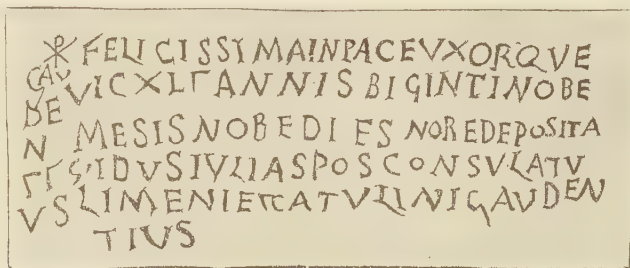 ☧ FELICISSIMAINPACEVXORQVE
VICXLTANNISBIGINTINOBE
MESISNOBEDIESNOREDEPOSITA
IDVSIVLIASPOSCONSVLATV
LIMENIETCATVLINIGAVDEN
TIVS
GAV
DE
N
TI
VS